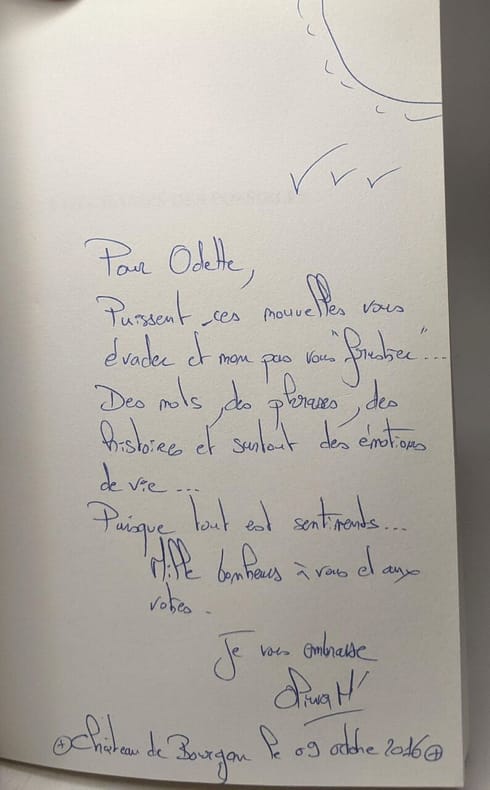 Pour Odette,
Puissent ces nouvelles vous
évader et non pas vous "frustrer"...
Des mots, des phrases, des
histoires et surtout des émotions
de vie...
Puisque tout est sentiments...
Mille bonheurs à vous et aux
votres.
Je vous embrasse
Château de Bourgon le 09 octobre 2016